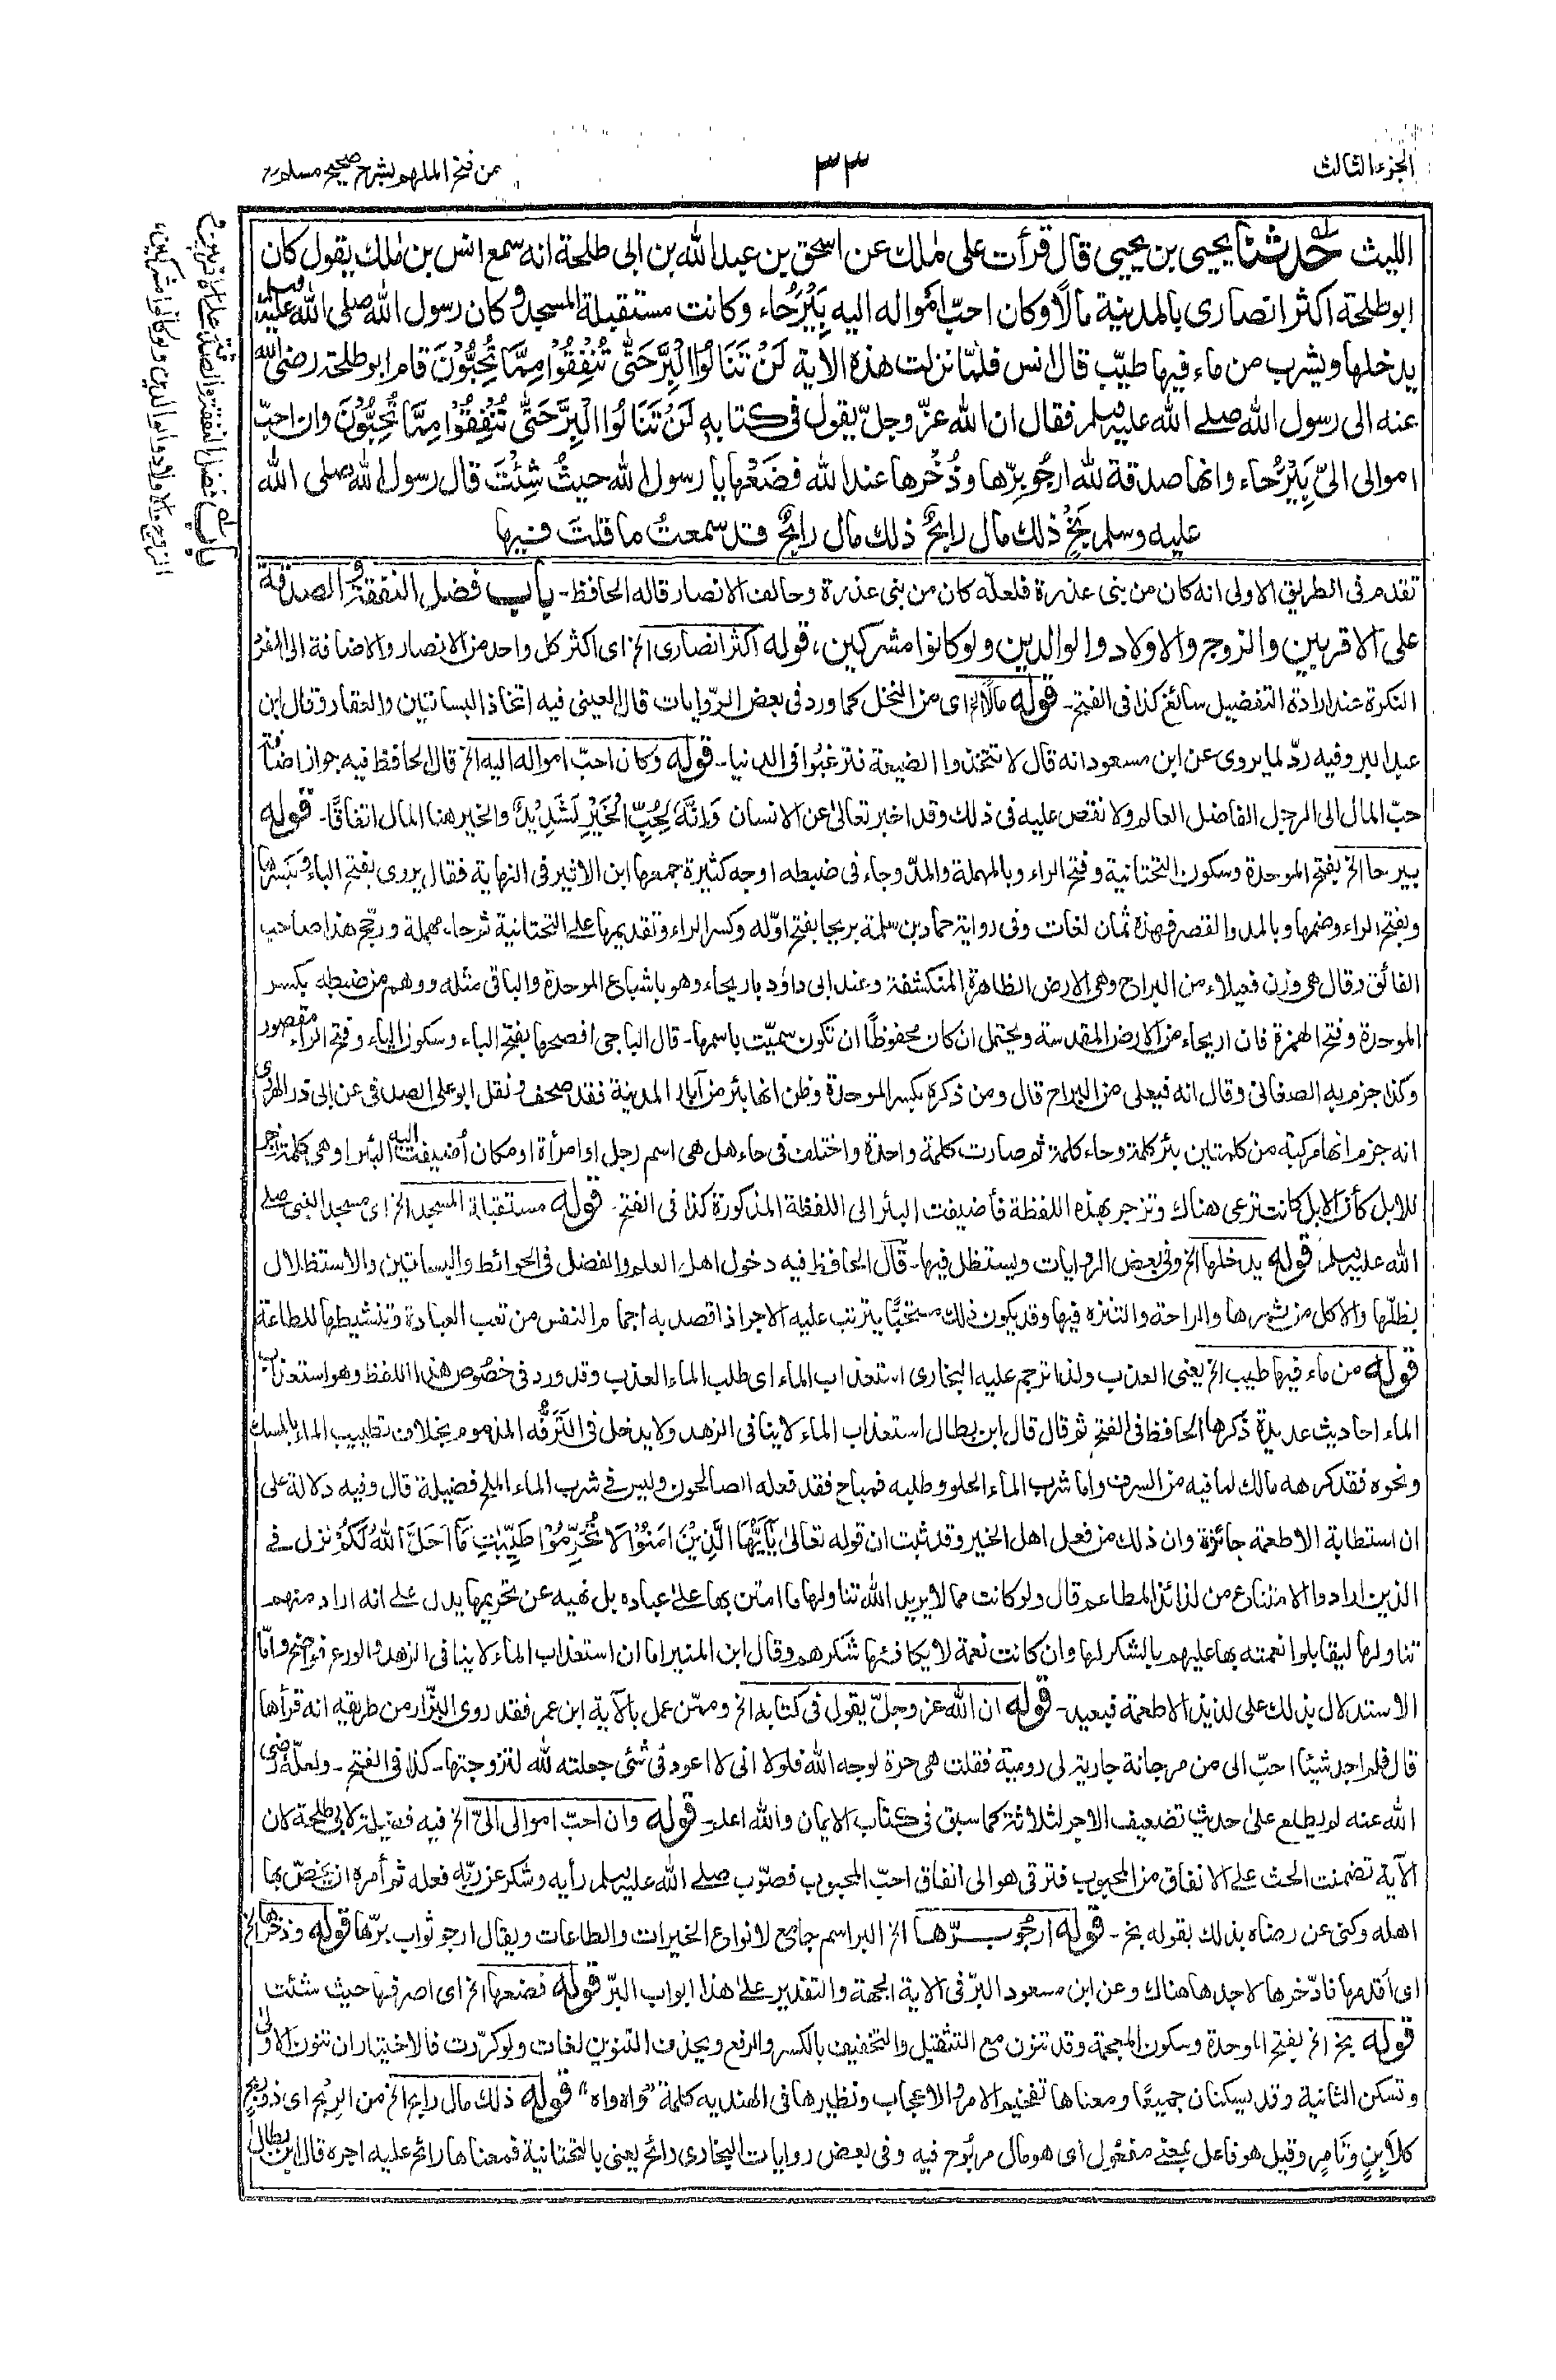 الجزء الثالث
٣٣
من فتح الملهم بشرح صحيح مسلم
باب فضل النفقة والصدقة على الاقربين
والزوج والاولاد والوالدين ولو كانوا مشركين،
الليث حدثنا يحيى بن يحيى قال قرأت على ملك عن اسحق بن عبد الله بن ابى طلحة انه سمع انس بن ملك يقول كان
ابو طلحة اكثر انصارى بالمدينة مالًا وكان احبّ امواله اليه بَيْرُحَاء وكانت مستقبلة المسجد وكان رسول الله صلى الله عليه وسلم
يدخلها ويشرب من ماء فيها طيّب قال انس فلمّا نزلت هذه الاية لَنْ تَنَالُوا الْبِرَّ حَتّٰى تُنْفِقُوْا مِمَّا تُحِبُّوْنَ قام ابو طلحة رضى الله
عنه الى رسول الله صلے الله عليه وسلم فقال ان الله عزّ وجلّ يقول فى كتابه لَنْ تَنَالُوا الْبِرَّ حَتّٰى تُنْفِقُوْا مِمَّا تُحِبُّوْنَ وان احبّ
اموالى الىّ بَيْرُحَاء وانها صدقة لله ارجُو برّها وذُخْرها عند الله فضَعْها يا رسول الله حيثُ شِئْتَ قال رسول الله صلى الله
عليه وسلم بَخْ ذلك مال رابحٌ ذلك مال رابحٌ قد سمعتُ ما قلتَ فيها
تقدم فى الطريق الاولى انه كان من بنى عذرة فلعلّه كان من بنى عذرة وحالف الانصار قاله الحافظ۔ باب فضل النفقة و الصدقة
على الاقربين والزوج والاولاد والوالدين ولو كانوا مشركين، قوله اكثر انصارى الخ اى اكثر كل واحد من الانصار والاضافة الى المفرد
النكرة عند ارادة التفضيل سائغ كذا فى الفتح۔ قوله مالًا الخ اى من النخل كما ورد فى بعض الرّوايات قال العينى فيه اتخاذ البساتين والعقار وقال ابن
عبد البر وفيه ردّ لما يروى عن ابن مسعود انه قال لا تتخذوا الضيعة فترغبُوا فى الدنيا۔ قوله وكان احبّ امواله اليه الخ قال الحافظ فيه جواز اضافة
حبّ المال الى الرجل الفاضل العالم ولا نقص عليه فى ذلك وقد اخبر تعالىٰ عن الانسان وَاِنَّهٗ لِحُبِّ الْخَيْرِ لَشَدِيْدٌ والخير هنا المال اتفاقًا۔ قوله
بيرحا الخ بفتح الموحدة وسكون التحتانية وفتح الراء وبالمهملة والمدّ وجاء فى ضبطه اوجه كثيرة جمعها ابن الاثير فى النهاية فقال يروى بفتح الباء وبكسرها
وبفتح الراء وضمها وبالمد والقصر فهذه ثمان لغات وفى رواية حماد بن سلمة بريحا بفتح اوّله وكسر الراء وتقديمها على التحتانية ثم حاء مهملة ورجّح هذا صاحب
الفائق وقال هى وزن فعيلاء من البراح وهى الارض الظاهرة المنكشفة وعند ابى داود باريحاء وهو باشباع الموحدة والباقى مثله ووهم من ضبطه بكسر
الموحدة وفتح الهمزة فان اريحاء من الارض المقدسة ويحتمل ان كان محفوظًا ان تكون سميّت باسمها۔ قال الباجى افصحها بفتح الباء وسكون الياء وفتح الراء مقصور
وكذا جزم به الصغانى وقال انه فيعلى من البراح قال ومن ذكره بكسر الموحدة وظن انها بئر من آبار المدينة فقد صحف ونقل ابو على الصدفى عن ابى ذر الهروى
انه جزم انها مركبة من كلمتين بئر كلمة وحاء كلمة ثم صارت كلمة واحدة واختلف فى حاء هل هى اسم رجل او امرأة او مكان أضيفت اليه البئر او هى كلمة زجر
للابل كأن الابل كانت ترعى هناك وتزجر بهذه اللفظة فأضيفت البئر الى اللفظة المذكورة كذا فى الفتح۔ قوله مستقبلة المسجد الخ اى مسجد النبى صلے
الله عليه وسلم۔ قوله يدخلها الخ وفى بعض الروايات ويستظل فيها۔ قال الحافظ فيه دخول اهل العلم والفضل فى الحوائط والبساتين والاستظلال
بظلّها والاكل من ثمرها والراحة والتنزه فيها وقد يكون ذلك مستحبًّا يترتب عليه الاجر اذا قصد به اجمام النفس من تعب العبادة وتنشيطها للطاعة
قوله من ماء فيها طيب الخ يعنى العذب ولذا ترجم عليه البخارى استعذاب الماء اى طلب الماء العذب وقد ورد فى خصُوص هذا اللفظ وهو استعذاب
الماء احاديث عديدة ذكرها الحافظ فى الفتح ثم قال قال ابن بطال استعذاب الماء لا ينافى الزهد ولا يدخل فى التَرَفُّه المذموم بخلاف تطييب الماء بالمسك
ونحوه فقد كرهه مالك لما فيه من السرف واما شرب الماء الحلو وطلبه فمباح فقد فعله الصالحون وليس فى شرب الماء الملح فضيلة قال وفيه دلالة على
ان استطابة الاطعمة جائزة وان ذلك من فعل اهل الخير وقد ثبت ان قوله تعالىٰ يٰۤاَيُّهَا الَّذِيْنَ اٰمَنُوْا لَا تُحَرِّمُوْا طَيِّبٰتِ مَاۤ اَحَلَّ اللّٰهُ لَكُمْ نزل فے
الذين ارادوا الامتناع من لذائذ المطاعم قال ولو كانت مما لا يريد الله تناولها ما امتن بها علىٰ عباده بل نهيه عن تحريمها يدل علے انه اراد منهم
تناولها ليقابلوا نعمته بها عليهم بالشكر لها وان كانت نعمة لا يكافئها شكرهم وقال ابن المنير اما ان استعذاب الماء لا ينافى الزهد والورع فواضح وامّا
الاستدلال بذلك على لذيذ الاطعمة فبعيد۔ قوله ان الله عز وجلّ يقول فى كتابه الخ وممّن عمل بالآية ابن عمر فقد روى البزّار من طريقه انه قرأها
قال فلم اجد شيئا احبّ الى من مرجانة جارية لى رومية فقلت هى حرة لوجه الله فلولا انى لا اعود فى شئى جعلته لله لتزوجتها۔ كذا فى الفتح۔ ولعلّه رضى
الله عنه لم يطلع علىٰ حديث تضعيف الاجر لثلاثة كما سبق فى كتاب الايمان والله اعلم۔ قوله وان احبّ اموالى الىّ الخ فيه فضيلة لابى طلحة لان
الآية تضمنت الحث على الانفاق من المحبوب فترقى هو الى انفاق احبّ المحبوب فصوّب صلے الله عليه وسلم رأيه وشكر عن ربّه فعله ثم أمره ان يخصّ بها
اهله وكنى عن رضاه بذلك بقوله بخ۔ قوله ارجُو برّها الخ البر اسم جامع لانواع الخيرات والطاعات ويقال ارجو ثواب برّها قوله وذخرها الخ
اى أقدمها فادّخرها لاجدها هناك وعن ابن مسعود البرّ فى الاية الجنة والتقدير علىٰ هذا ابواب البرّ قوله فضعها الخ اى اصرفها حيث شئت
قوله بخ الخ بفتح الموحدة وسكون المعجمة وقد تنون مع التثقيل والتخفيف بالكسر والرفع ويحذف التنوين لغات ولو كرّرت فالاختيار ان تنون الاولىٰ
وتسكن الثانية وقد يسكنان جميعًا ومعناها تفخيم الامر والاعجاب ونظيرها فى الهنديه كلمة "واه واه" قوله ذلك مال رابح الخ من الربح اى ذو ربح
كلابِنٍ وتَامِرٍ وقيل هو فاعل بمعنے مفعُول اى هو مال مربُوح فيه وفى بعض روايات البخارى رائح يعنى بالتحتانية فمعناها رائح عليه اجره قال ابن بطال